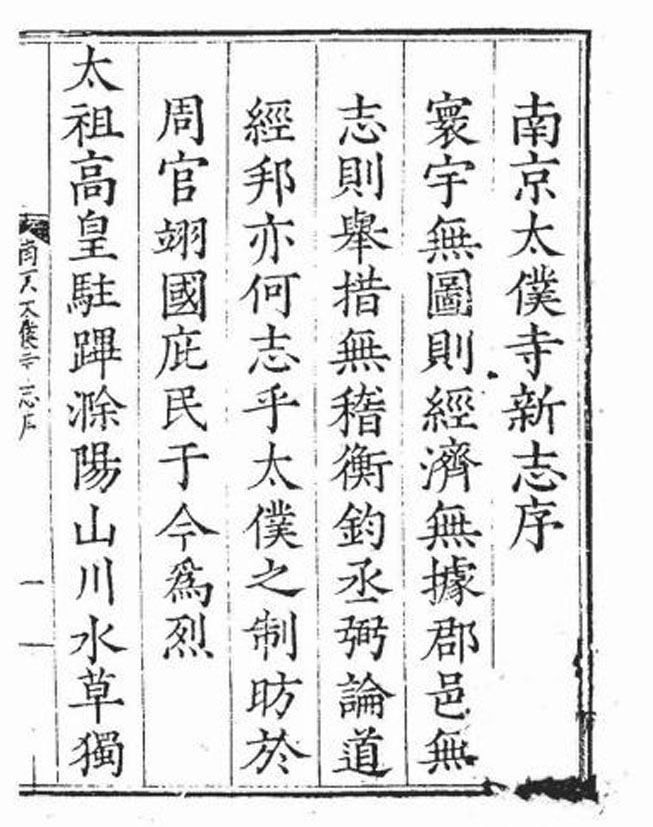 南京太僕寺新志序
寰宇無圖則經濟無據郡邑無
志則舉措無稽衡鈞丞弼論道
經邦亦何志乎太僕之制昉於
周官翊國庇民于今爲烈
太祖高皇駐蹕滁陽山川水草獨
南京太僕寺志序
一